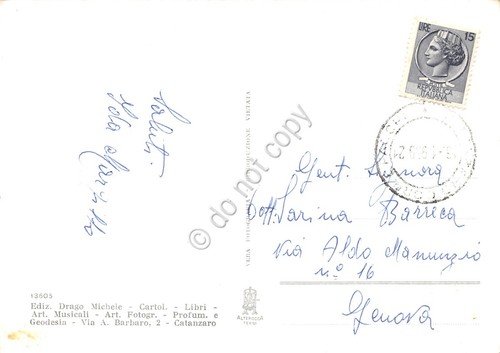 LIRE 15
REPUBBLICA
ITALIANA
Saluti
Gent. Signora
Dott. Sarina Barreca
Via Aldo Manunzio
n.o 16
Genova
do not copy
VERA FOTOGRAFIA
RIPRODUZIONE VIETATA
13605
Ediz. Drago Michele - Cartol. - Libri -
Art. Musicali - Art. Fotogr. - Profum. e
Geodesia - Via A. Barbaro, 2 - Catanzaro
ALTEROCCA
TERNI